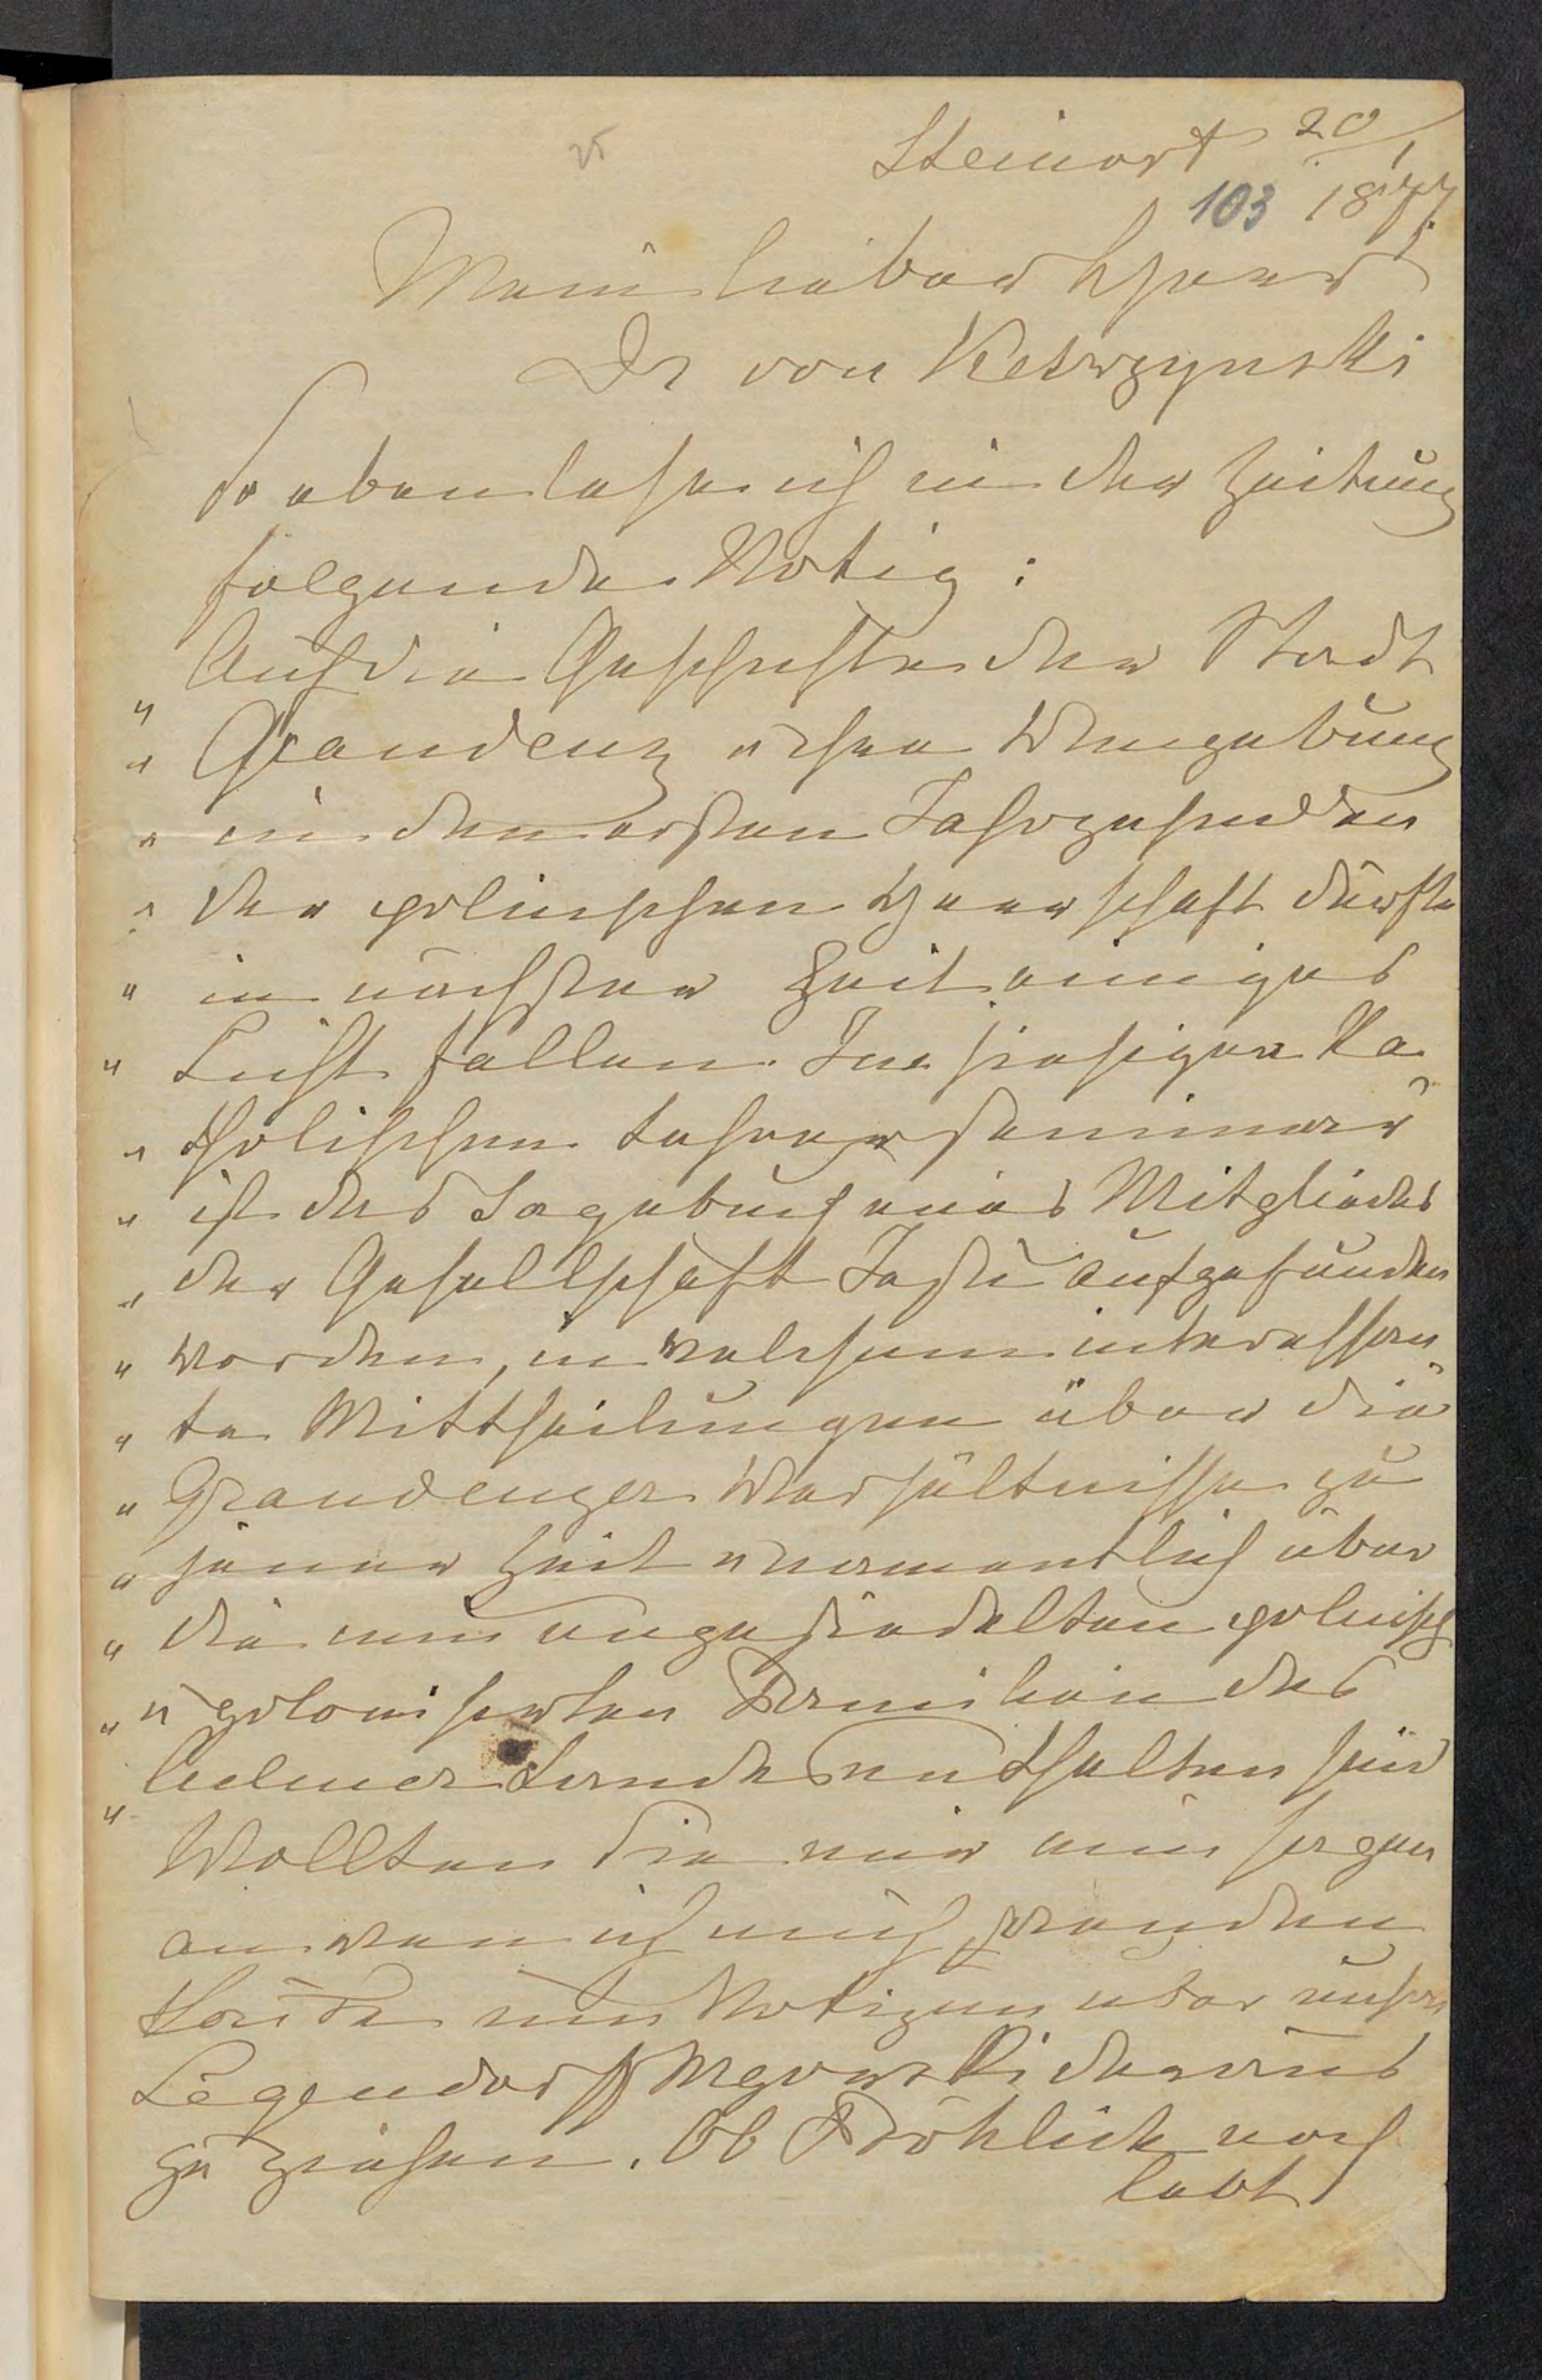 25
Steinort 20/1
103 1877.
Mein lieber Herr
Dr von Ketrzynski
So eben lese ich in der Zeitung
folgende Notiz:
„ Auf die Geschichte der Stadt
„ Graudenz u ihrer Umgebung
„ in den ersten Jahrzehnden
„ der polnischen Herrschaft dürfte
„ in nächster Zeit einiges
„ Licht fallen. Im hiesigen Ka-
„ tholischen Lehrerseminar
„ ist das Tagebuch eines Mitgliedes
„ der Gesellschaft Jesu aufgefunden
„ worden, in welchem interessan-
„ te Mittheilungen über die
„ Graudenzer Verhältnisse zu
„ jener Zeit u namentlich über
„ die neu angesiedelten polnisch
„ u polonisirten Familien des
„ Culmer Landes enthalten sind
Wollten Sie mir nun sagen
an wen ich mich wenden
könnte um Notizen über unsre
Legendorf Mgowski daraus
zu ziehen. Ob Fröhlich noch
lebt